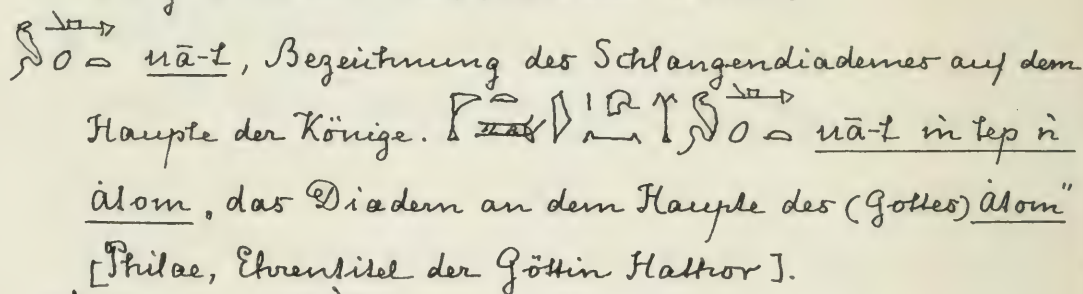 uā-t, Bezeichnung des Schlangendiademes auf dem
Haupte der Könige. uā-t im tep n
átom „das Diadem an dem Haupte des (Gottes) átom"
[Philae, Ehrentitel der Göttin Hathor].